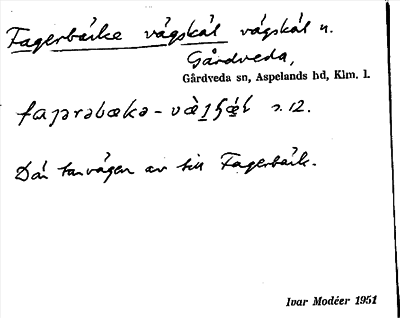 Fagerbäcke vägskäl vägskäl n.
Gårdveda,
Gårdveda sn, Aspelands hd, Klm. l.
s. 12.
Där tar vägen av till Fagerbäck.
Ivar Modéer 1951